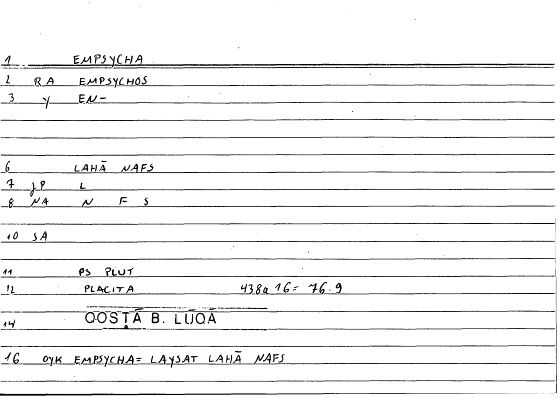 1 EMPSYCHA
2 RA EMPSYCHOS
3 y EN-
6 LAHĀ NAFS
7 JP L
8 NA N F S
10 SA
11 PS PLUT
12 PLACITA 438a 16 = 76.9
14 QOSṬĀ B. LŪQĀ
16 OYK EMPSYCHA= LAYSAT LAHĀ NAFS